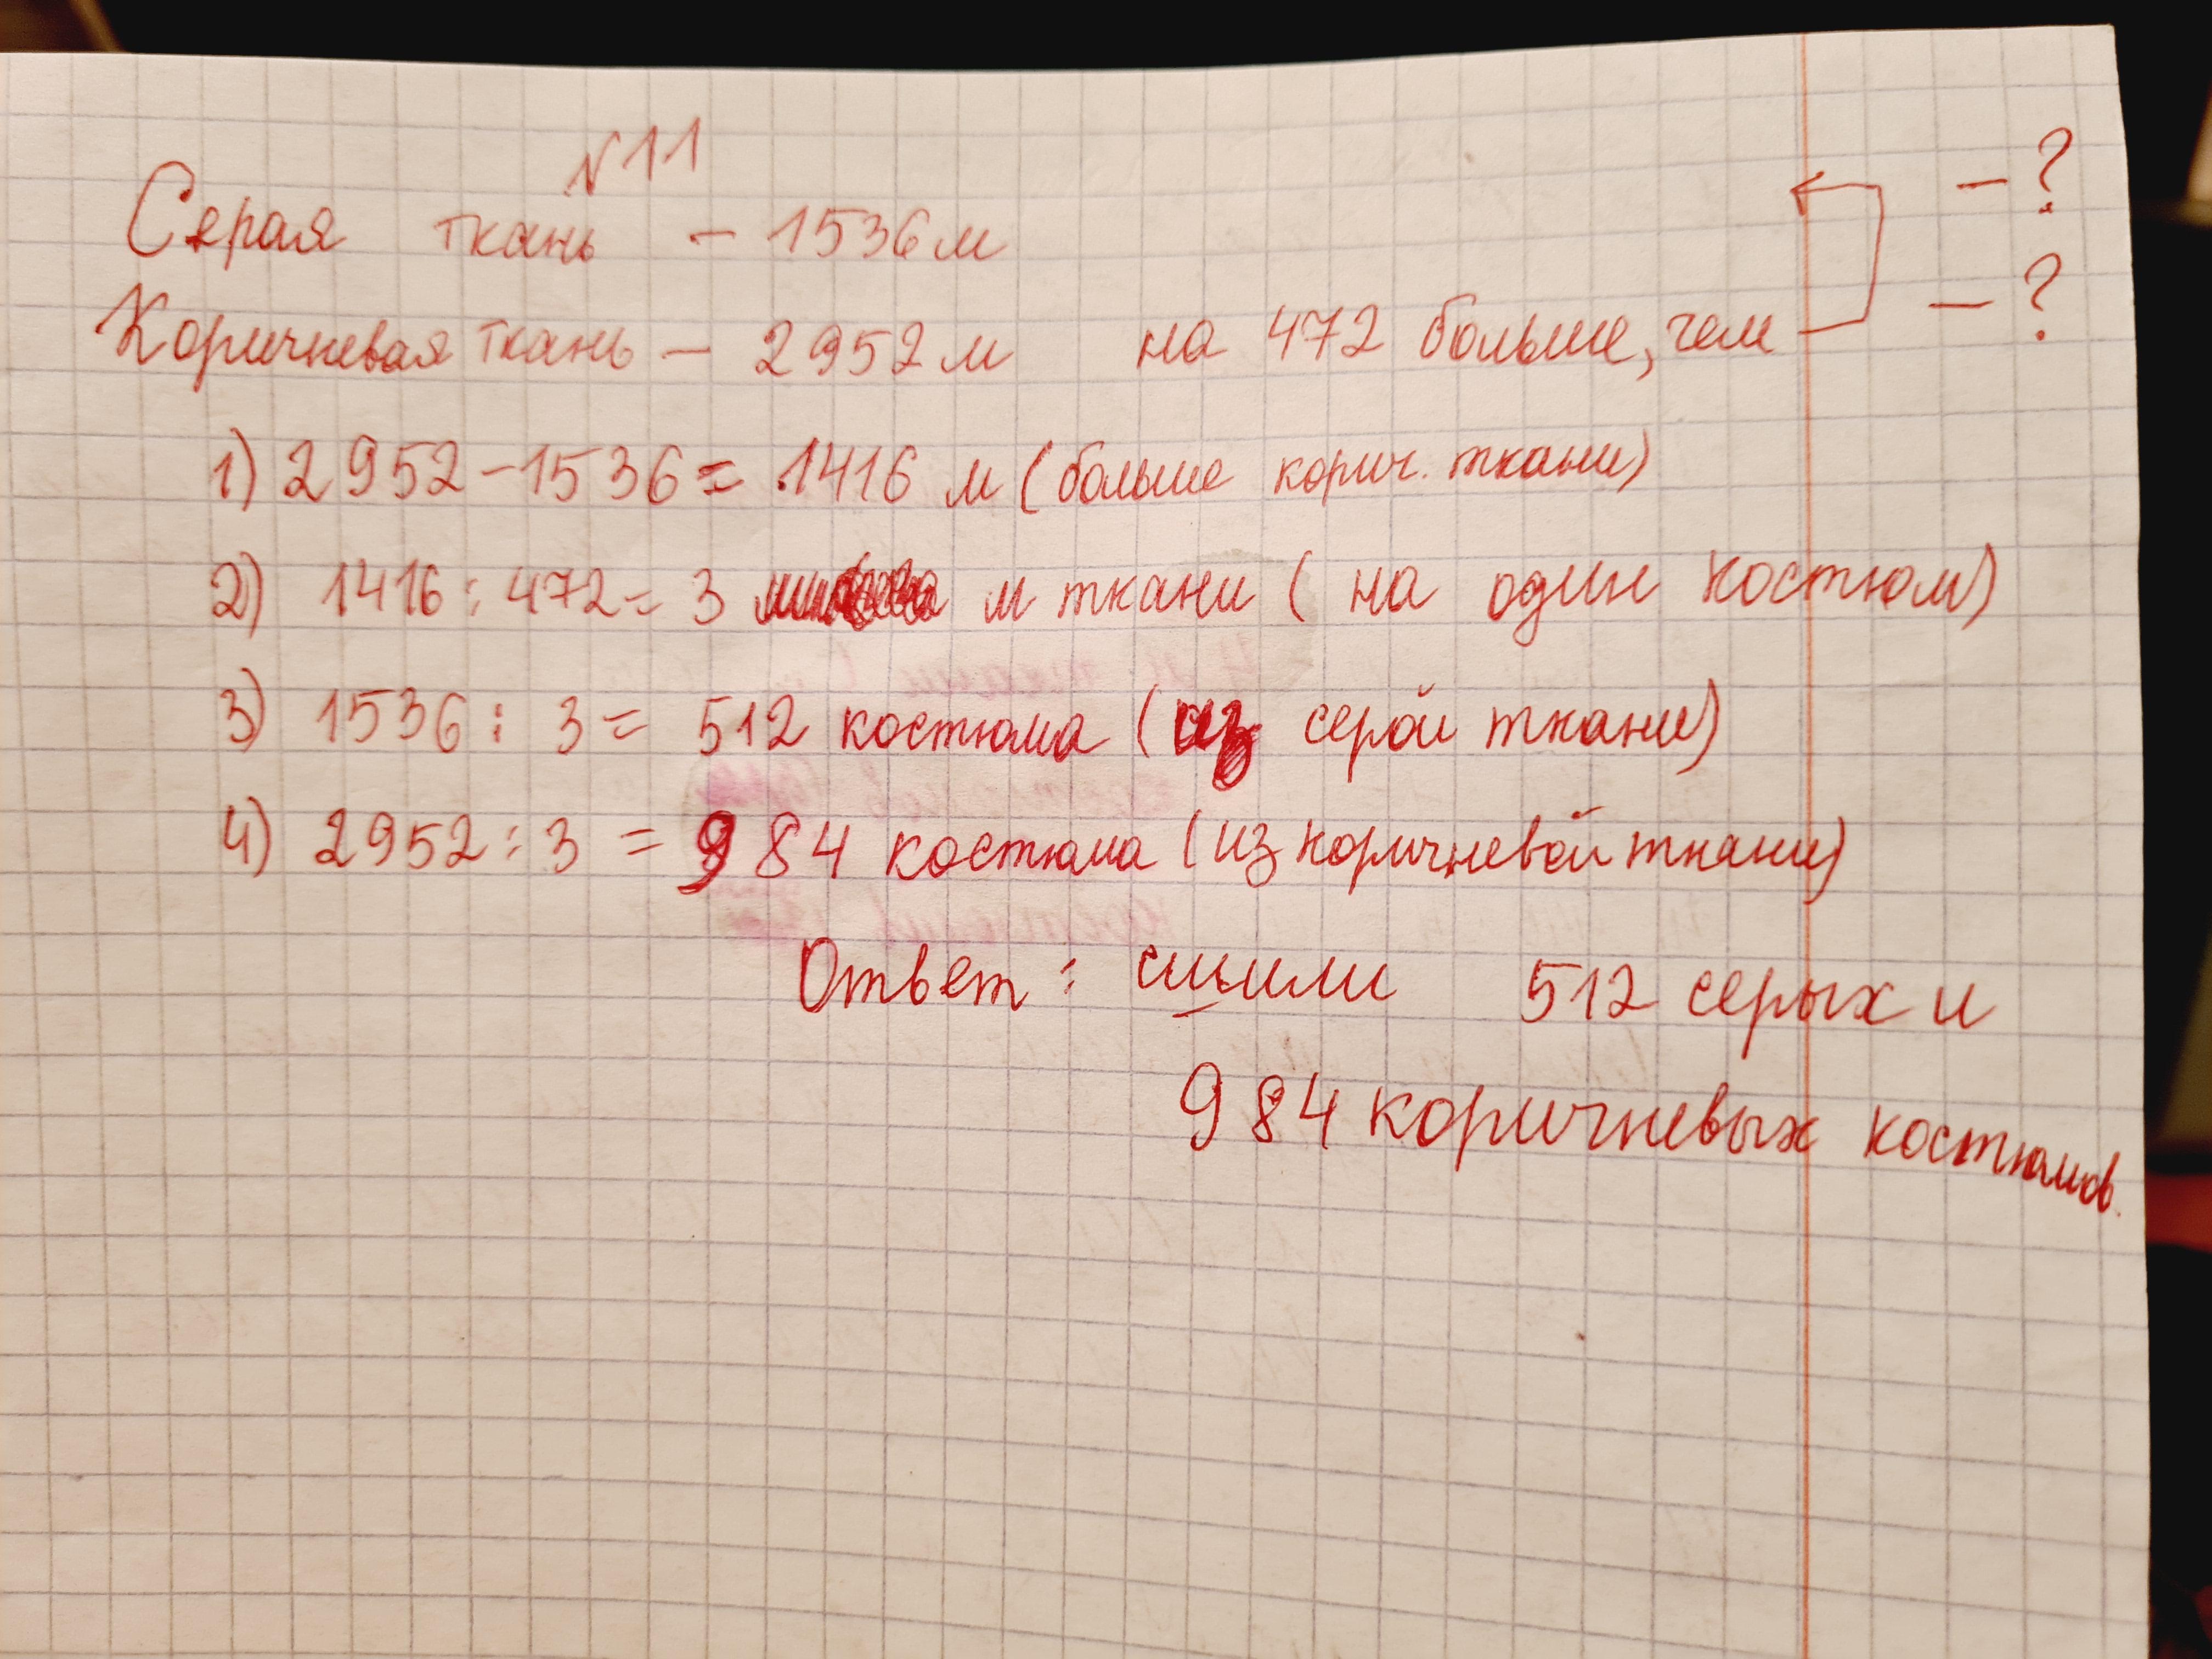 №11
Серая ткань – 1536 м – ?
Коричневая ткань – 2952 м на 472 больше, чем – ?
1) 2952 – 1536 = 1416 м (больше корич. ткани)
2) 1416 : 472 = 3 м ткани (на один костюм)
3) 1536 : 3 = 512 костюма (из серой ткани)
4) 2952 : 3 = 984 костюма (из коричневой ткани)
Ответ: сшили 512 серых и
984 коричневых костюмов.